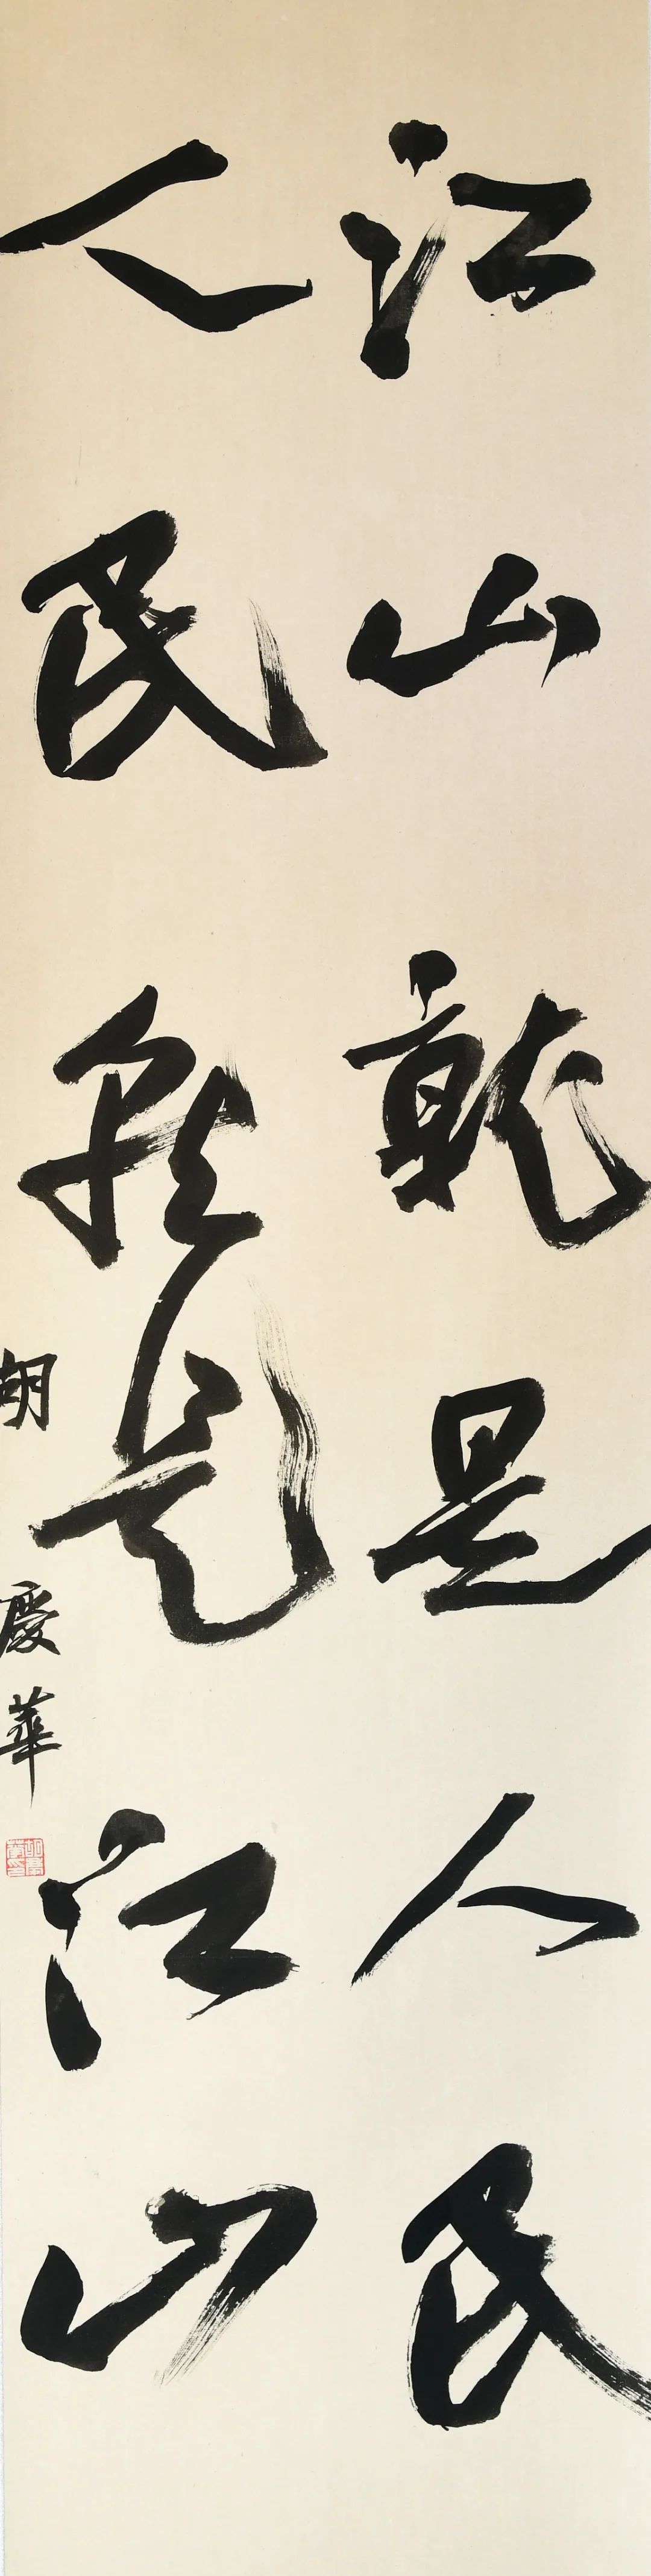 江山就是人民
人民就是江山
胡慶華